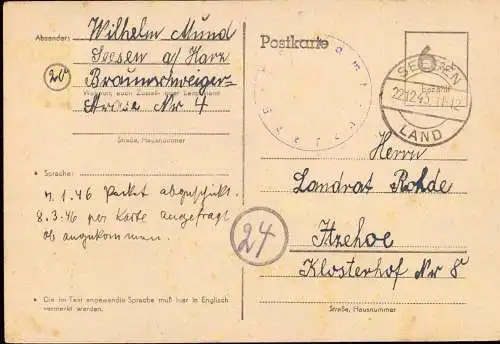 Absender: Wilhelm Mund
Seesen a/ Harz
20 Braunschweiger-
Wohnort, auch Zustell- oder Leitpostamt
Strasse Nr 4
Straße, Hausnummer
• Sprache:
1.46 Paket abgeschickt.
8.3.46 per Karte angefragt
ob angekommen.
• Die im Text angewandte Sprache muß hier in Englisch
vermerkt werden.
Postkarte
6
bezahlt
SEESEN
22.12.45.11-12
LAND
Herrn
Landrat Rohde
24
Itzehoe
Klosterhof Nr 8
Straße, Hausnummer